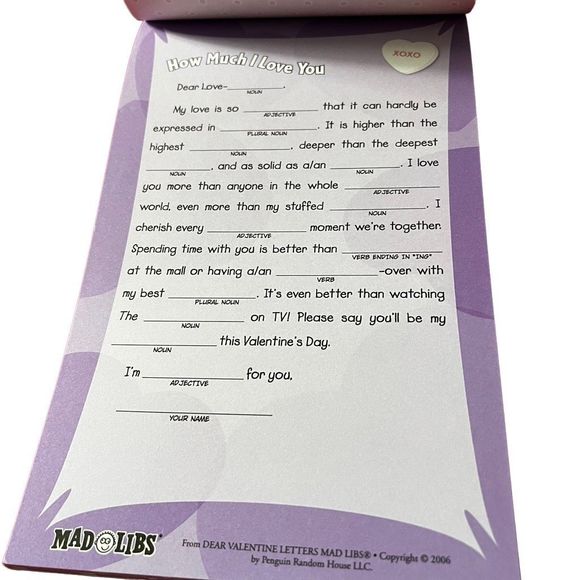 How Much I Love You
XOXO
Dear Love-__________,
NOUN
My love is so __________ that it can hardly be
ADJECTIVE
expressed in __________. It is higher than the
PLURAL NOUN
highest __________, deeper than the deepest
NOUN
__________, and as solid as a/an __________. I love
NOUN NOUN
you more than anyone in the whole __________
ADJECTIVE
world, even more than my stuffed __________. I
NOUN
cherish every __________ moment we're together.
ADJECTIVE
Spending time with you is better than __________
VERB ENDING IN "ING"
at the mall or having a/an __________-over with
VERB
my best __________. It's even better than watching
PLURAL NOUN
The __________ on TV! Please say you'll be my
NOUN
__________ this Valentine's Day.
NOUN
I'm __________ for you,
ADJECTIVE
__________
YOUR NAME
MAD LIBS®
From DEAR VALENTINE LETTERS MAD LIBS® • Copyright © 2006
by Penguin Random House LLC.